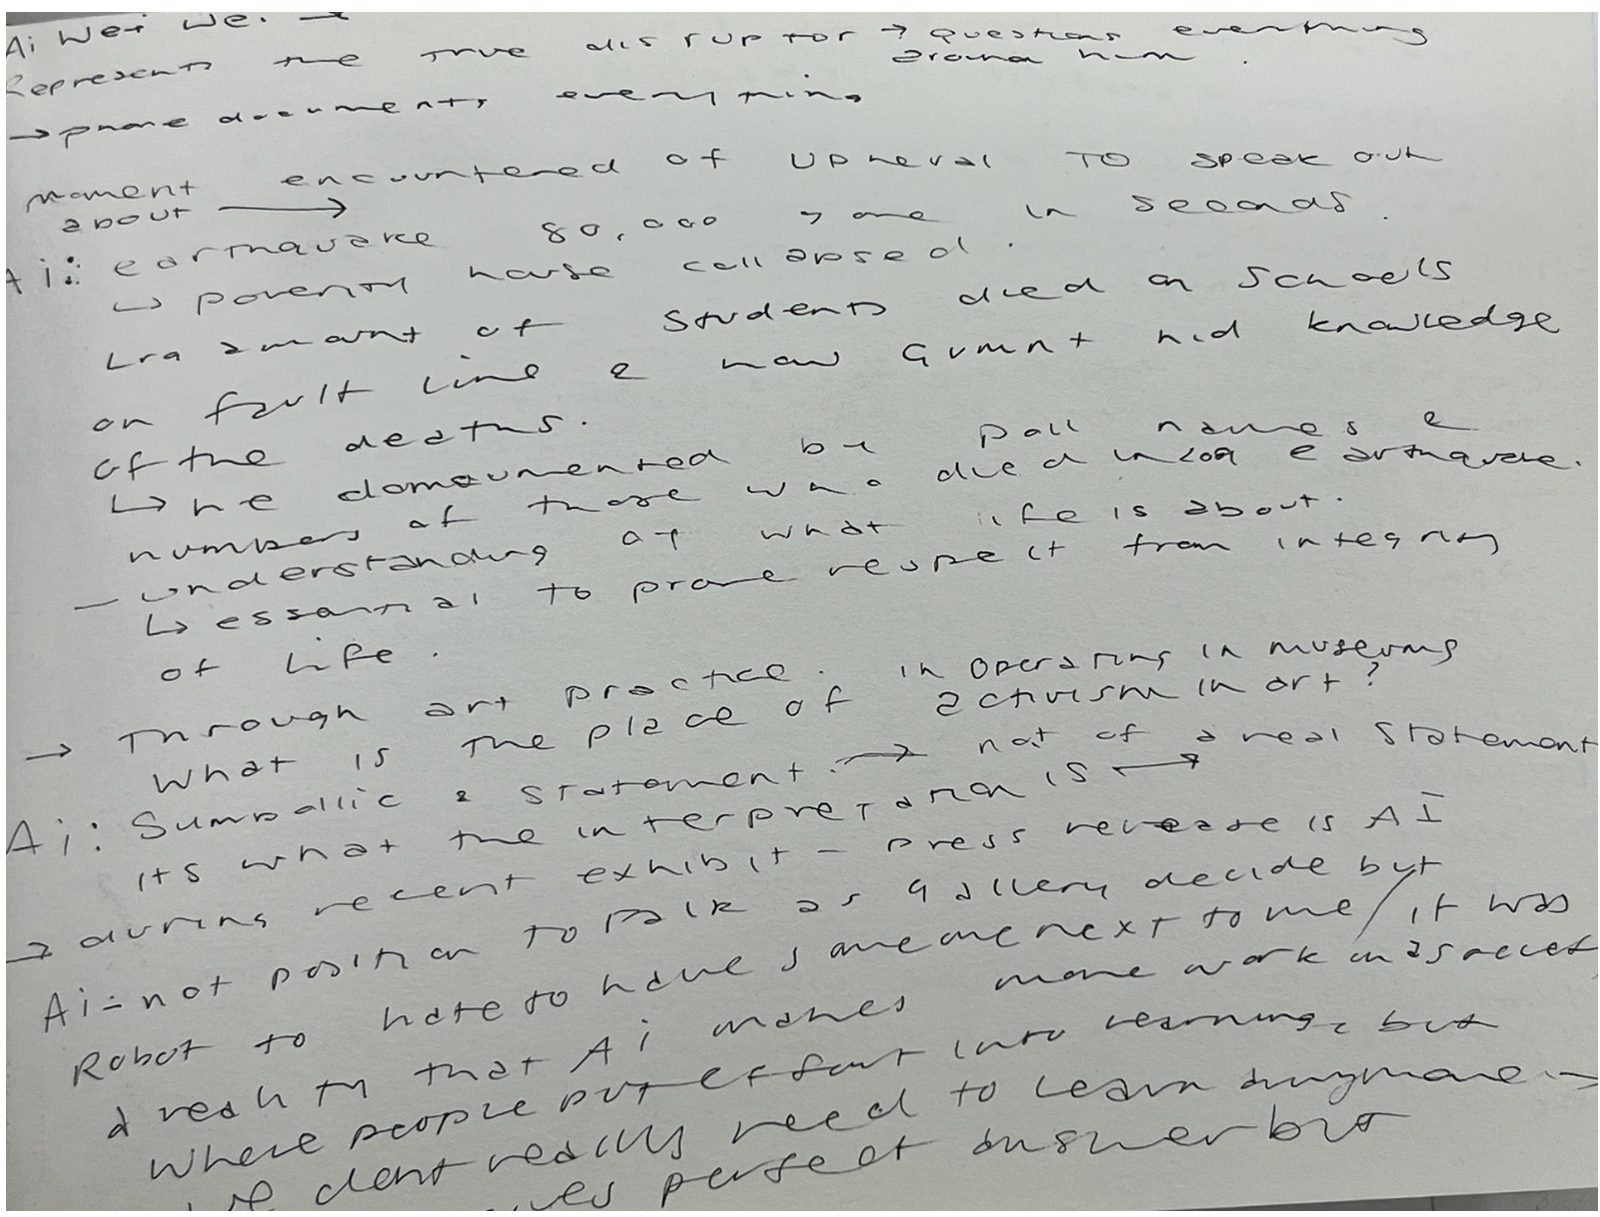 Ai Wei Wei →
Represents the true disruptor → questions everything
around him.
→ phone documents everything
moment encountered of upheval to speak out
about →
Ai: earthquake 80,000 gone in seconds.
↳ poverty house collapsed.
↳ amount of students died on schools
on fault line & how Gvmnt hid knowledge
of the deaths.
↳ he documented by all names &
numbers of those who died in earthquake.
– understanding of what life is about.
↳ essential to prove respect from integrity
of life.
→ Through art practice. in operating in museums
what is the place of activism in art?
Ai: Sumbollic & statement. → not of a real statement
its what the interpretation is
→ during recent exhibit – press release is AI
Ai – not position to talk as gallery decide but
Robot to hate to have someone next to me / it was
a reality that Ai makes more work
where people put effort into learning, but
we dont really need to learn anymore →
perfect answer but